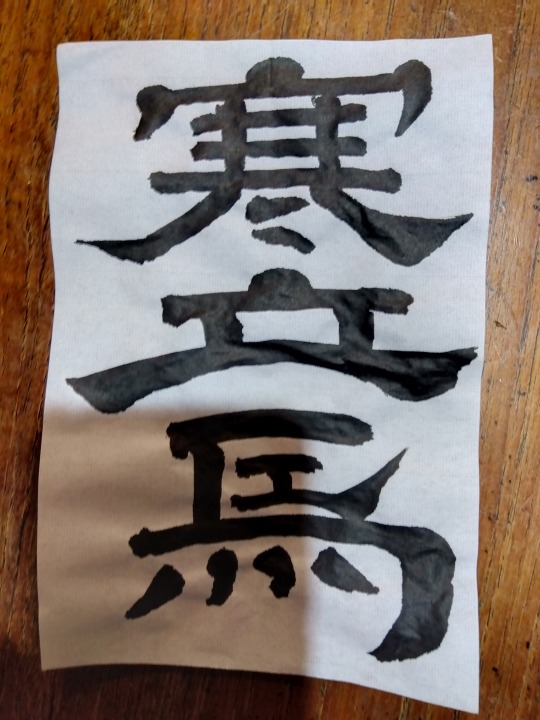 寒
立
馬